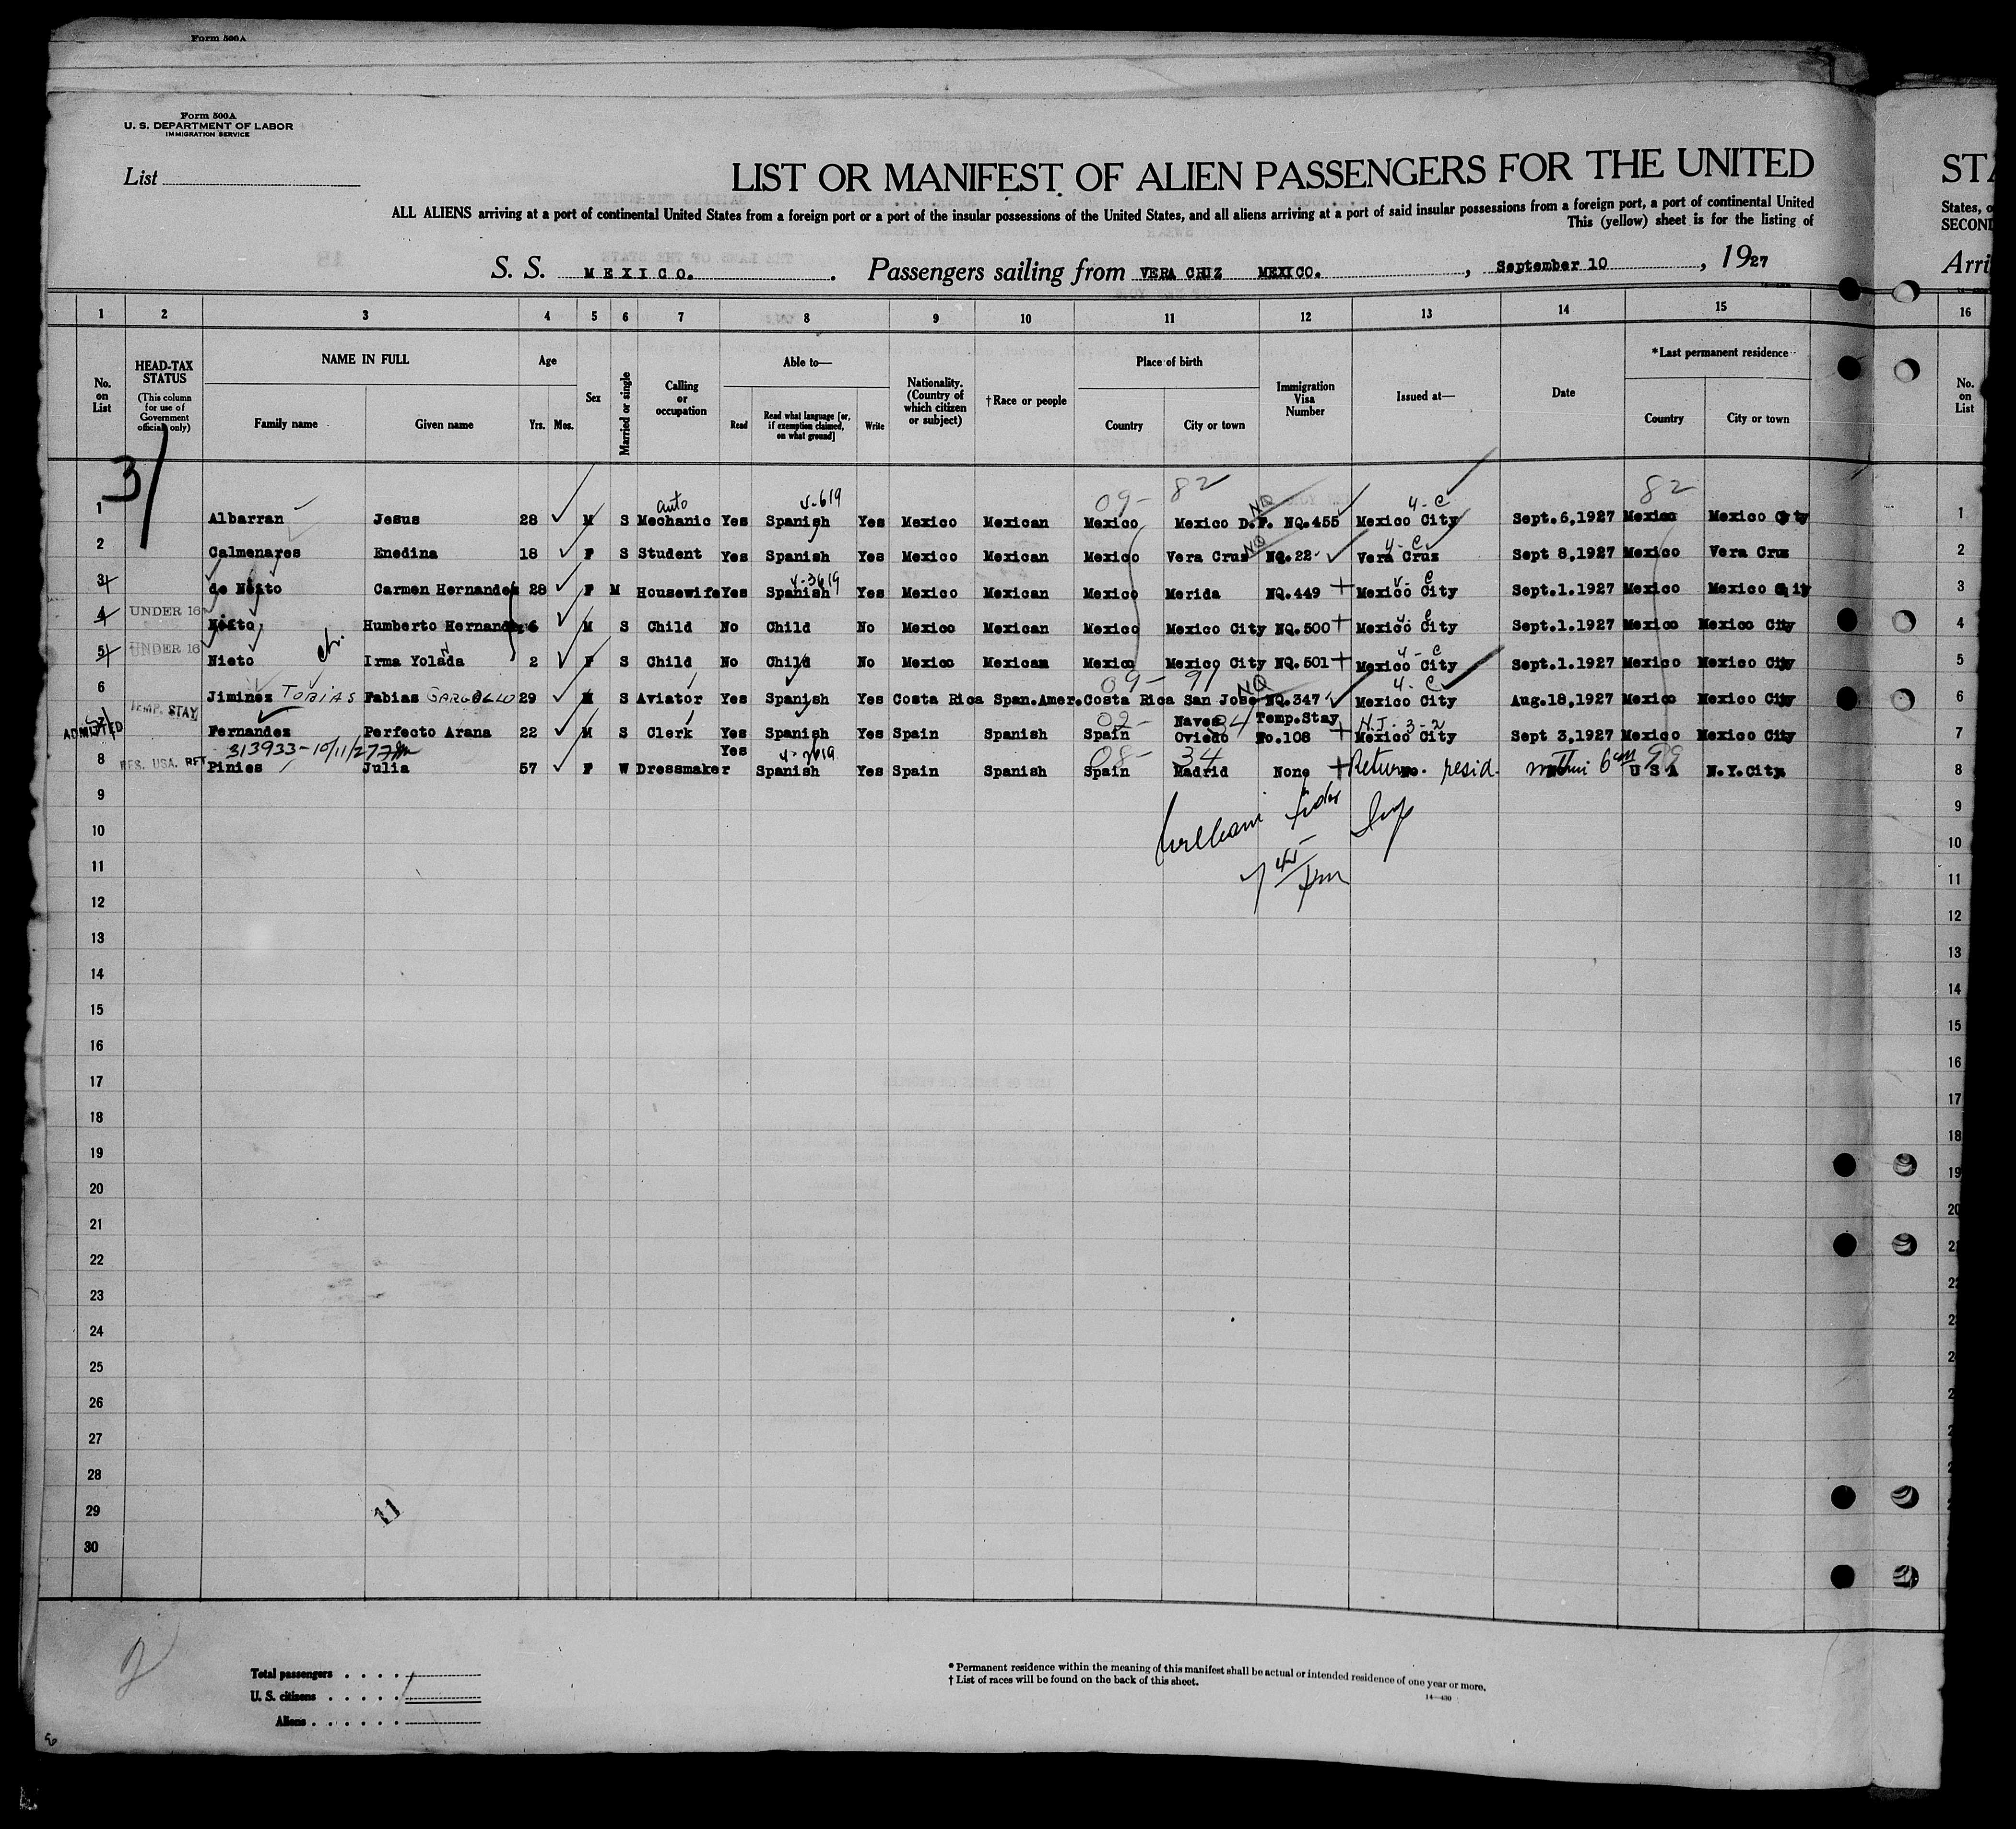 Form 500A
Form 500A
U. S. DEPARTMENT OF LABOR
IMMIGRATION SERVICE
List
LIST OR MANIFEST OF ALIEN PASSENGERS FOR THE UNITED
ALL ALIENS arriving at a port of continental United States from a foreign port or a port of the insular possessions of the United States, and all aliens arriving at a port of said insular possessions from a foreign port, a port of continental United
This (yellow) sheet is for the listing of
STA
States, o
SECOND
S. S. MEXICO. Passengers sailing from VERA CRUZ MEXICO. , September 10 , 1927
Arri
1 2 3 4 5 6 7 8 9 10 11 12 13 14 15 16
No. on List
HEAD-TAX STATUS
(This column for use of Government officials only)
NAME IN FULL
Family name Given name
Age
Yrs. Mos.
Sex
Married or single
Calling or occupation
Able to—
Read
Read what language [or, if exemption claimed, on what ground]
Write
Nationality. (Country of which citizen or subject)
†Race or people
Place of birth
Country City or town
Immigration Visa Number
Issued at—
Date
*Last permanent residence
Country City or town
No. on List
3/
auto 4-619 09- 82 NQ 4-C 82
1 Albarran Jesus 28 M S Mechanic Yes Spanish Yes Mexico Mexican Mexico Mexico D.F. NQ.455 Mexico City Sept.6,1927 Mexico Mexico City 1
NQ 4-C
2 Calmenares Enedina 18 F S Student Yes Spanish Yes Mexico Mexican Mexico Vera Cruz NQ.22 Vera Cruz Sept 8,1927 Mexico Vera Cruz 2
4-3619 4-C
3 de Neito Carmen Hernandez 28 F M Housewife Yes Spanish Yes Mexico Mexican Mexico Merida NQ.449 Mexico City Sept.1.1927 Mexico Mexico City 3
4 UNDER 16 Neito Humberto Hernandez 6 M S Child No Child No Mexico Mexican Mexico Mexico City NQ.500 Mexico City Sept.1.1927 Mexico Mexico City 4
4-C
5 UNDER 16 Nieto Irma Yolada 2 F S Child No Child No Mexico Mexican Mexico Mexico City NQ.501 Mexico City Sept.1.1927 Mexico Mexico City 5
09- 91 NQ 4-C
6 Jiminez TOBIAS Fabias GARGOLLO 29 M S Aviator Yes Spanish Yes Costa Rica Span.Amer. Costa Rica San Jose NQ.347 Mexico City Aug.18,1927 Mexico Mexico City 6
TEMP. STAY 02- Naves Temp.Stay 3-2
ADMITTED Fernandez Perfecto Arana 22 M S Clerk Yes Spanish Yes Spain Spanish Spain Oviedo No.108 Mexico City Sept 3,1927 Mexico Mexico City 7
313933-10/11/27 08- 34 99
8 RES. USA. RET Pinies Julia 57 F W Dressmaker Yes Spanish Yes Spain Spanish Spain Madrid None Return resid. 6 U S A N.Y.City 8
9 9
10 10
11 11
7 45 pm
12 12
13 13
14 14
15 15
16 16
17 17
18 18
19 19
20 20
21
22
23
24
25
26
27
28
29
30
11
Total passengers
U. S. citizens
Aliens
* Permanent residence within the meaning of this manifest shall be actual or intended residence of one year or more.
† List of races will be found on the back of this sheet.
14—430